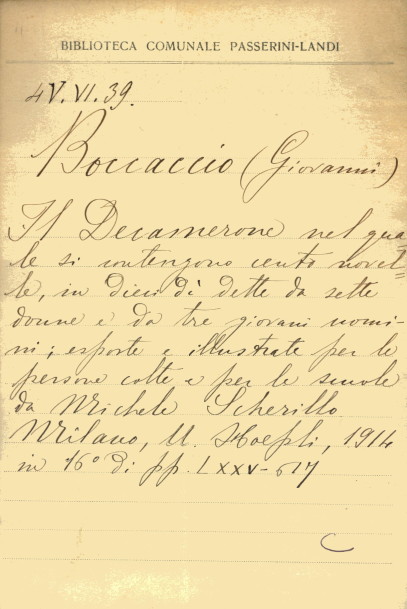 BIBLIOTECA COMUNALE PASSERINI-LANDI
4V.VI.39.
Boccaccio (Giovanni)
Il Decamerone nel qua=
le si contengono cento novel=
le, in dieci dì dette da sette
donne e da tre giovani uomi-
ni; esposte e illustrate per le
persone colte e per le scuole
da Michele Scherillo.
Milano, U. Hoepli, 1914
in 16° di pp. LXXV-617
C